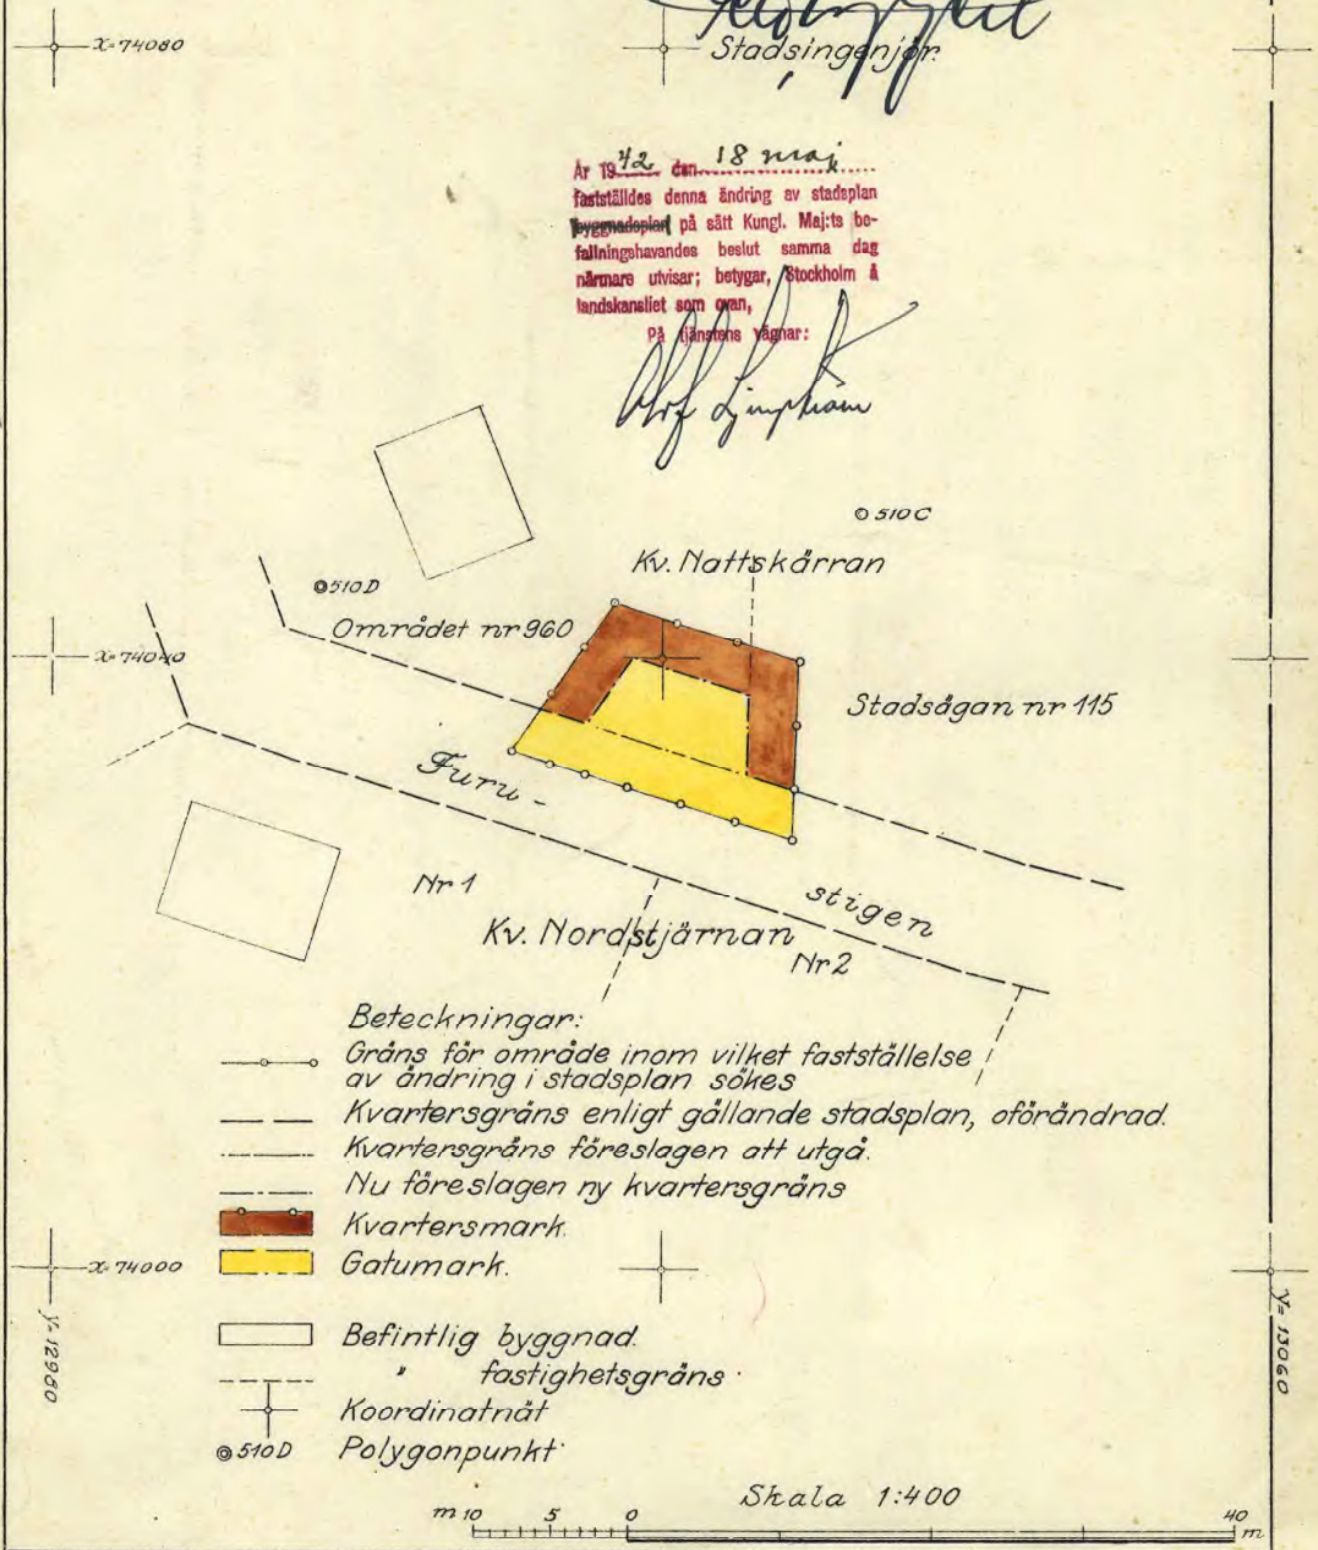 x=74080
Stadsingenjör.
År 1942 den 18 maj
fastställdes denna ändring av stadsplan
byggnadsplan på sätt Kungl. Maj:ts be-
fallningshavandes beslut samma dag
närmare utvisar; betygar, Stockholm å
landskansliet som ovan,
På tjänstens vägnar:
510C
Kv. Nattskärran
510D
Området nr 960
x=74040
Stadsägan nr 115
Furu-
stigen
Nr 1
Kv. Nordstjärnan
Nr 2
Beteckningar:
Gräns för område inom vilket fastställelse
av ändring i stadsplan sökes
Kvartersgräns enligt gällande stadsplan, oförändrad.
Kvartersgräns föreslagen att utgå.
Nu föreslagen ny kvartersgräns
Kvartersmark.
x=74000
Gatumark.
y=12980
y=13060
Befintlig byggnad.
" fastighetsgräns
Koordinatnät
510D Polygonpunkt
Skala 1:400
m 10 5 0 40 m